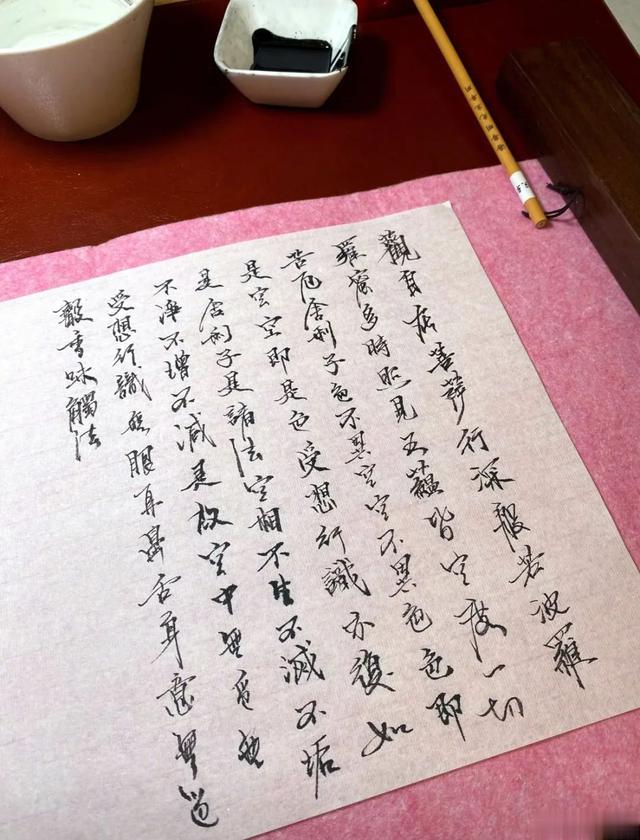 觀自在菩薩行深般若波羅
羅蜜多時照見五蘊皆空度一切
苦厄舍利子色不異空空不異色色即
是空空即是色受想行識亦復如
是舍利子是諸法空相不生不滅不垢
不淨不增不減是故空中無色無
受想行識無眼耳鼻舌身意無色
聲香味觸法